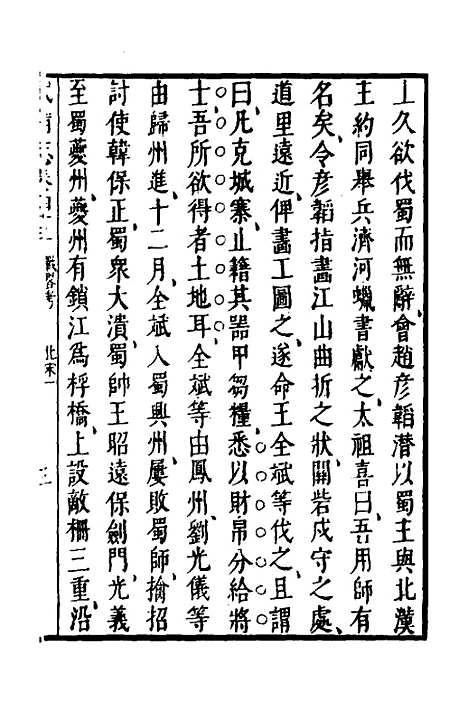 上久欲伐蜀而無辭、會趙彦韜潛以蜀主與北漢
主約同舉兵濟河蠟書獻之、太祖喜曰、吾用師有
名矣、令彦韜指畫江山曲折之狀、關砦戍守之處、
道里遠近、俾畫工圖之、遂命王全斌等伐之、且謂
曰、凡克城寨、止籍其噐甲芻糧、悉以財帛分給將
士、吾所欲得者土地耳、全斌等由鳳州、劉光儀等
由歸州進、十二月、全斌入蜀興州、屢敗蜀師、擒招
討使韓保正、蜀衆大潰、蜀帥王昭遠保劍門、光義
至蜀夔州、夔州有鎖江爲桴橋、上設敵柵三重、沿
戰畧考
北宋一